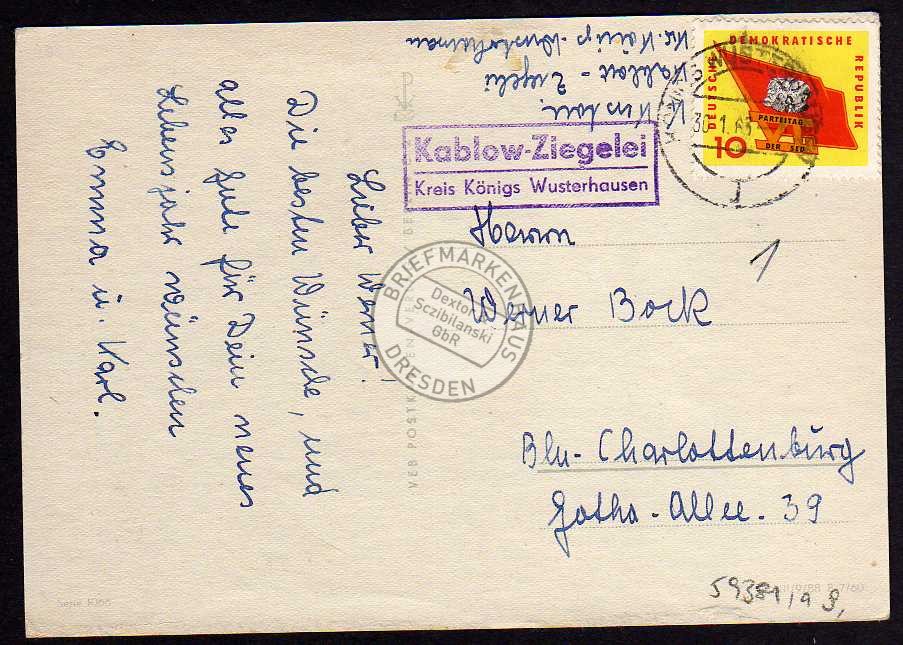 Lieber Werner!
Die besten Wünsche, und
alles Gute für Dein neues
Lebensjahr wünschen
Emma u. Karl.
Kablow - Ziegelei
Kr. Königs-Wusterhausen
Kablow-Ziegelei
Kreis Königs Wusterhausen
DEUTSCHE DEMOKRATISCHE REPUBLIK
PARTEITAG
DER SED
10
Herrn
Werner Bock
1
Bln-Charlottenburg
Gotha-Allee. 39
BRIEFMARKENHAUS
Dextor
Sczibilanski
GbR
DRESDEN
VEB POSTKARTEN
Serie
59381/a 9,